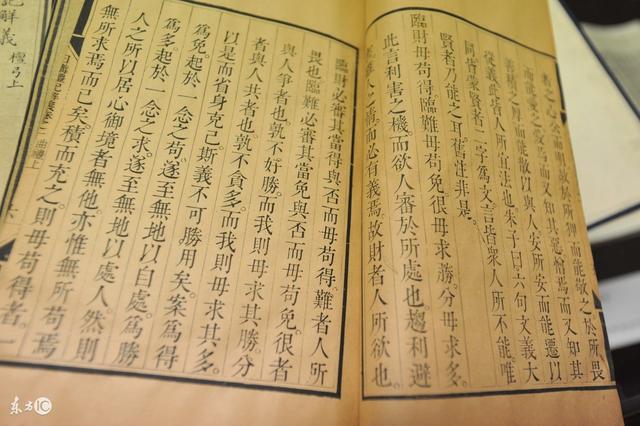 者之心 而專故於所狎而能敬之於所畏
而能愛之於 愛焉而又知其惡憎焉而又知其
善積 而能散以與人安所安而能遷以
從義此皆人所宜法也朱子曰六句文義大
同皆蒙賢者二字為文言皆衆人所不能唯
賢者乃能之耳。舊注非是。
臨財毋苟得。臨難毋苟免。很毋求勝。分毋求多。
此言利害之機。而欲人審於所處也。趨利避
人之情而必有義焉。故財者人所欲也。
臨財必審其當得與否。而毋苟得。難者人所
畏也。臨難必審其當免與否。而毋苟免。很者
與人爭者也。孰不好勝。而我則毋求其勝。分
者與人共者也。孰不貪多。而我則毋求其多。
以是而省身克己。斯義不可勝用矣。案為得
為免。起於一念之苟。遂至無地以自處。為勝
為多。起於一念之求。遂至無地以處人。然則
人之所以居心御境者無他。亦惟無所苟焉
無所求焉而已矣。積而充之。則毋苟得者。一
日講禮記解義 卷二 曲禮上
記解義 檀弓上
东方IC